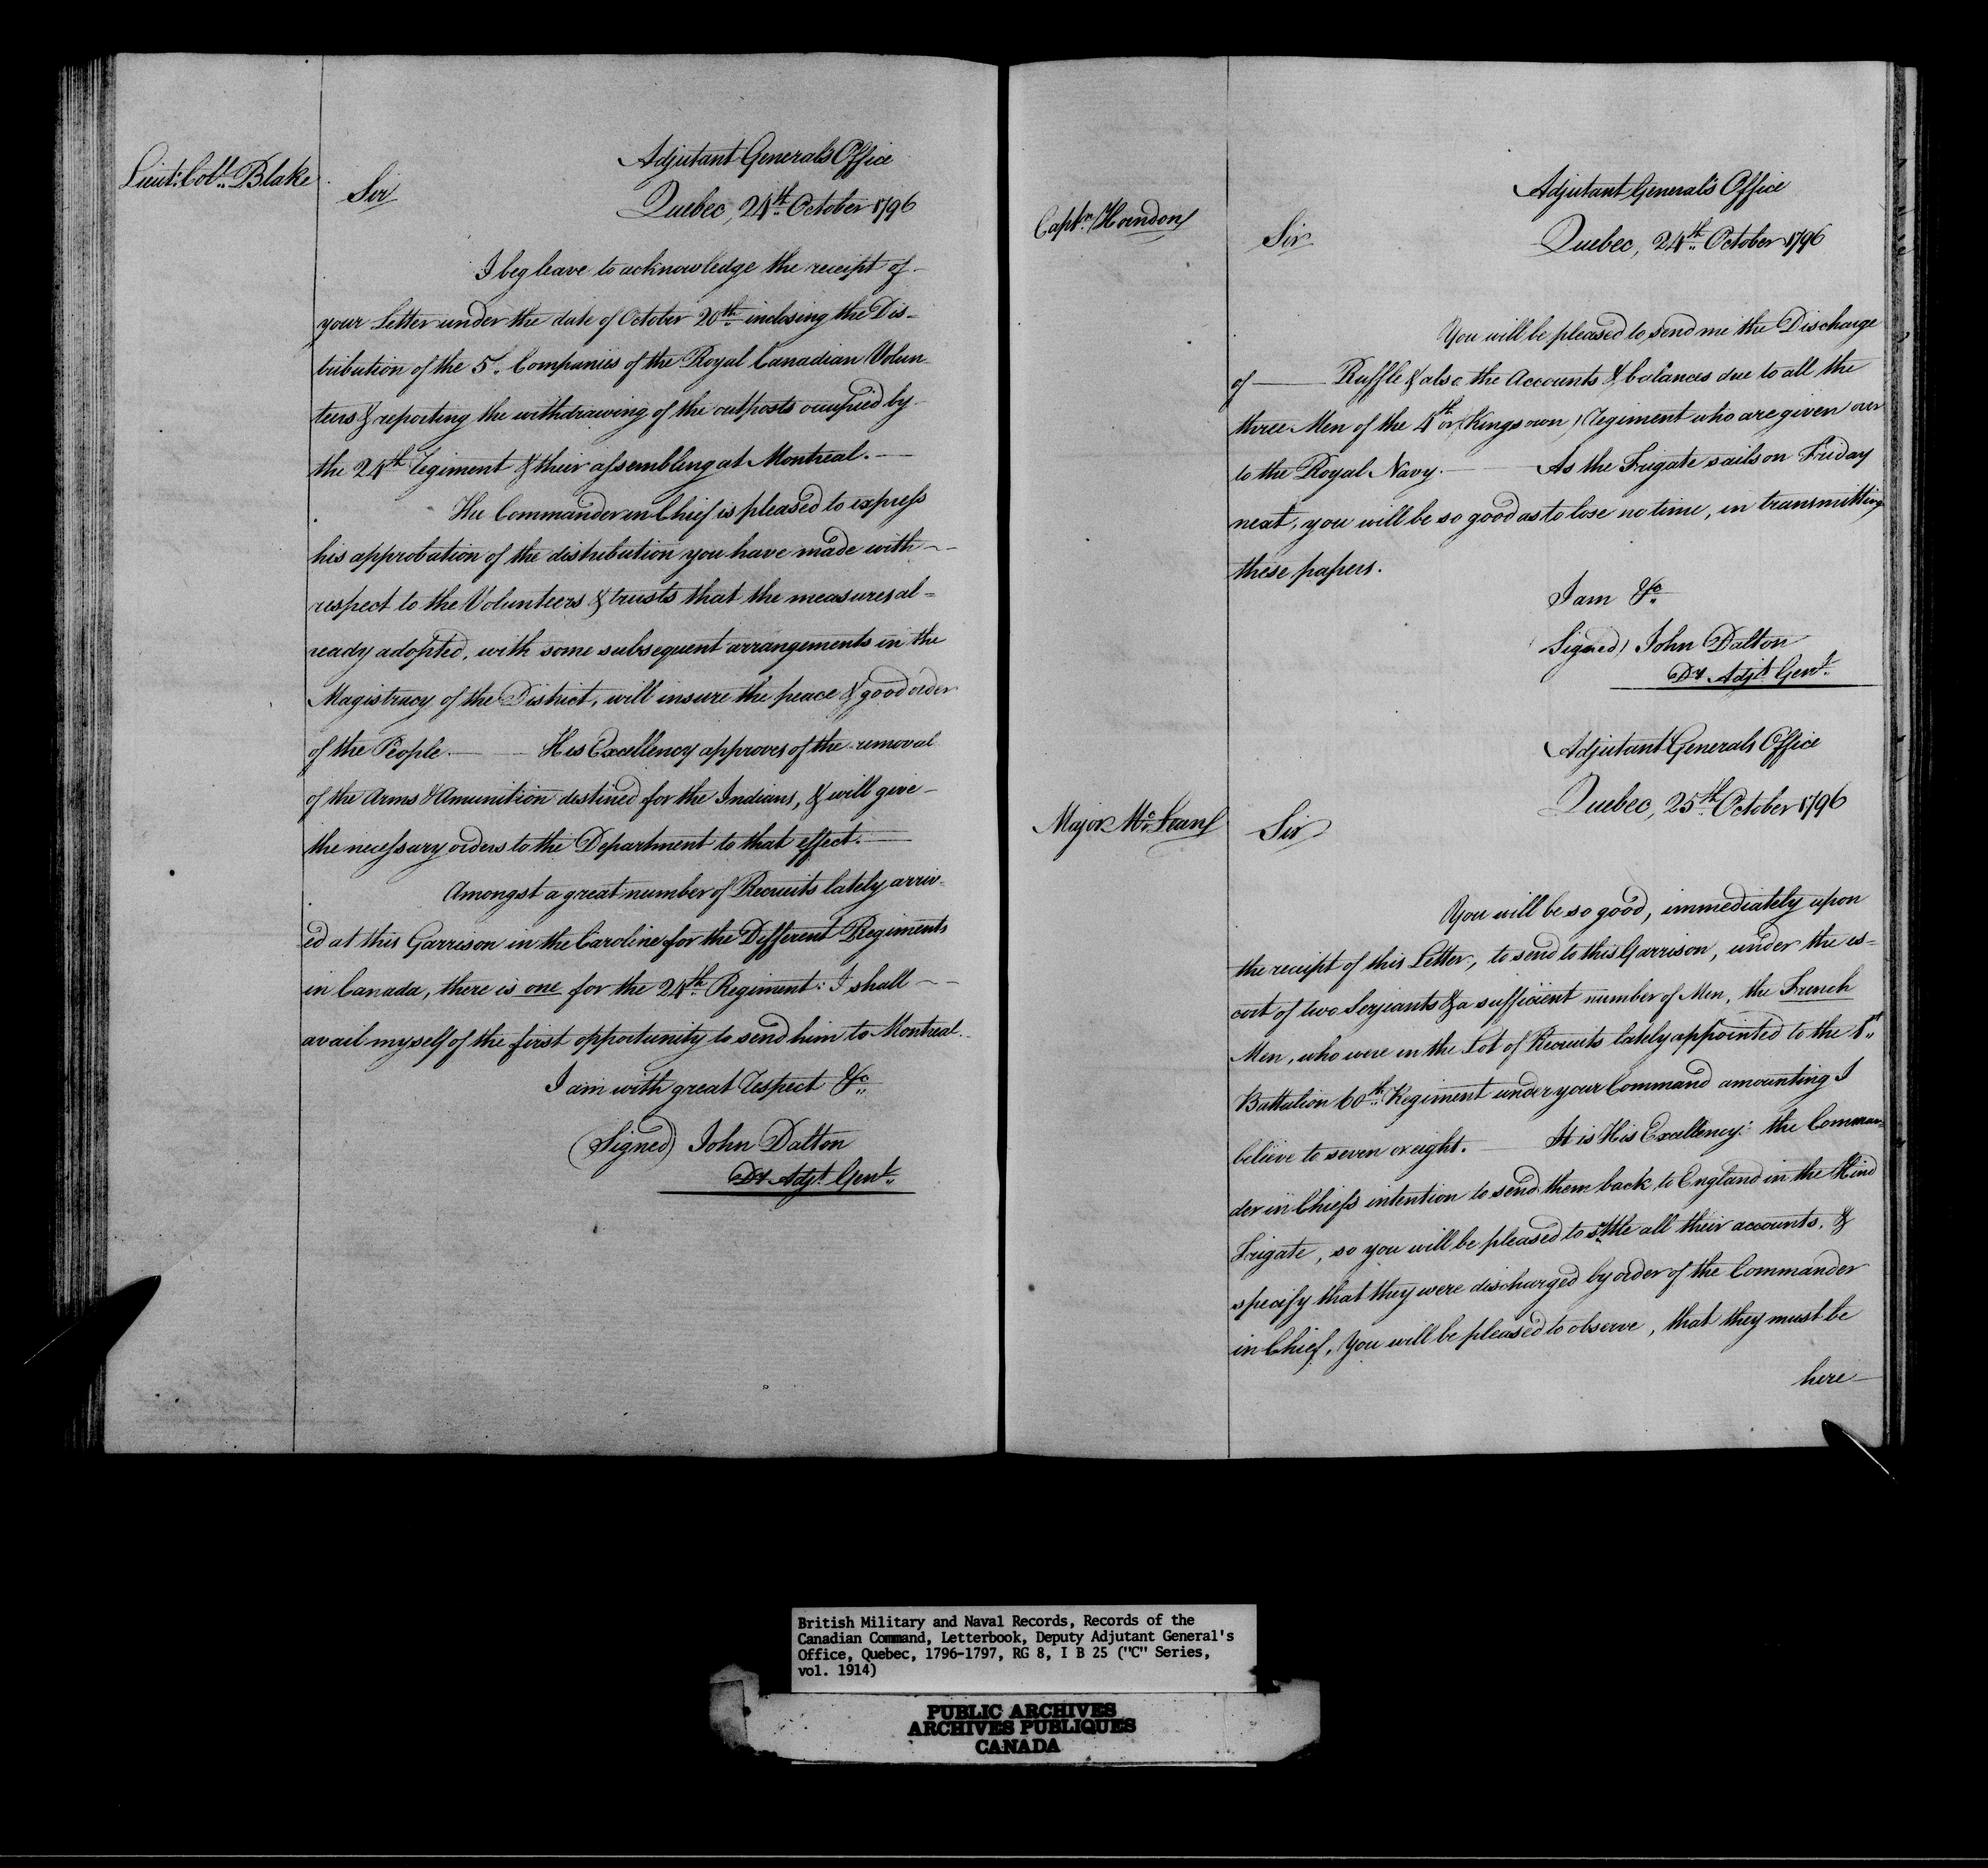 Lieut: Coll: Blake
Adjutant Generals Office
Sir
Quebec, 24th October 1796
I beg leave to acknowledge the receipt of
your Letter under the date of October 20th inclosing the Dis-
tribution of the 5. Companies of the Royal Canadian Volun-
teers & reporting the withdrawing of the outposts occupied by
the 24th Regiment & their assembling at Montreal. —
The Commander in Chief is pleased to express
his approbation of the distribution you have made with
respect to the Volunteers & trusts that the measures al=
ready adopted, with some subsequent arrangements in the
Magistracy of the District, will insure the peace & good order
of the People. — His Excellency approves of the removal
of the Arms & Amunition destined for the Indians, & will give
the necessary orders to the Department to that effect. —
Amongst a great number of Recruits lately arriv-
ed at this Garrison in the Caroline for the Different Regiments
in Canada, there is one for the 24th Regiment: I shall
avail myself of the first opportunity to send him to Montreal.
I am with great respect &c
(Signed) John Dalton
Dy Adjt Genl.
Adjutant General's Office
Captn
Sir
Quebec, 24th October 1796
You will be pleased to send me the Discharge
of —— Ruffle & also the Accounts & balances due to all the
three Men of the 4th or (Kings own) Regiment who are given over
to the Royal Navy. — As the Frigate sails on Friday
next, you will be so good as to lose no time, in transmitting
these papers.
I am &c
(Signed) John Dalton
Dy Adjt Genl.
Adjutant Generals Office
Quebec, 25th October 1796
Major Mc.Lean
Sir
You will be so good, immediately upon
the receipt of this Letter, to send to this Garrison, under the es=
cort of two Serjeants & a sufficient number of Men, the French
Men, who were in the Lot of Recruits lately appointed to the 1st
Battalion 60th Regiment under your Command amounting I
believe to seven or eight. — It is His Excellency: the Comman=
der in Chiefs intention to send them back to England in the Hind
Frigate, so you will be pleased to settle all their accounts, &
specify that they were discharged by order of the Commander
in Chief, You will be pleased to observe, that they must be
here
British Military and Naval Records, Records of the
Canadian Command, Letterbook, Deputy Adjutant General's
Office, Quebec, 1796-1797, RG 8, I B 25 ("C" Series,
vol. 1914)
PUBLIC ARCHIVES
ARCHIVES PUBLIQUES
CANADA